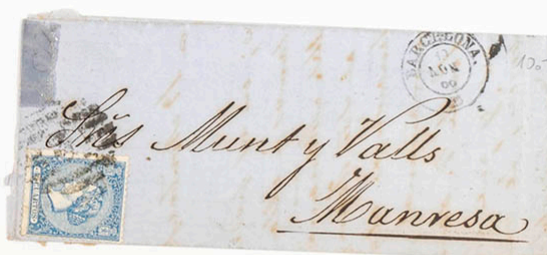 BARCELONA.
AGO
66
Sres Munt y Valls
Manresa